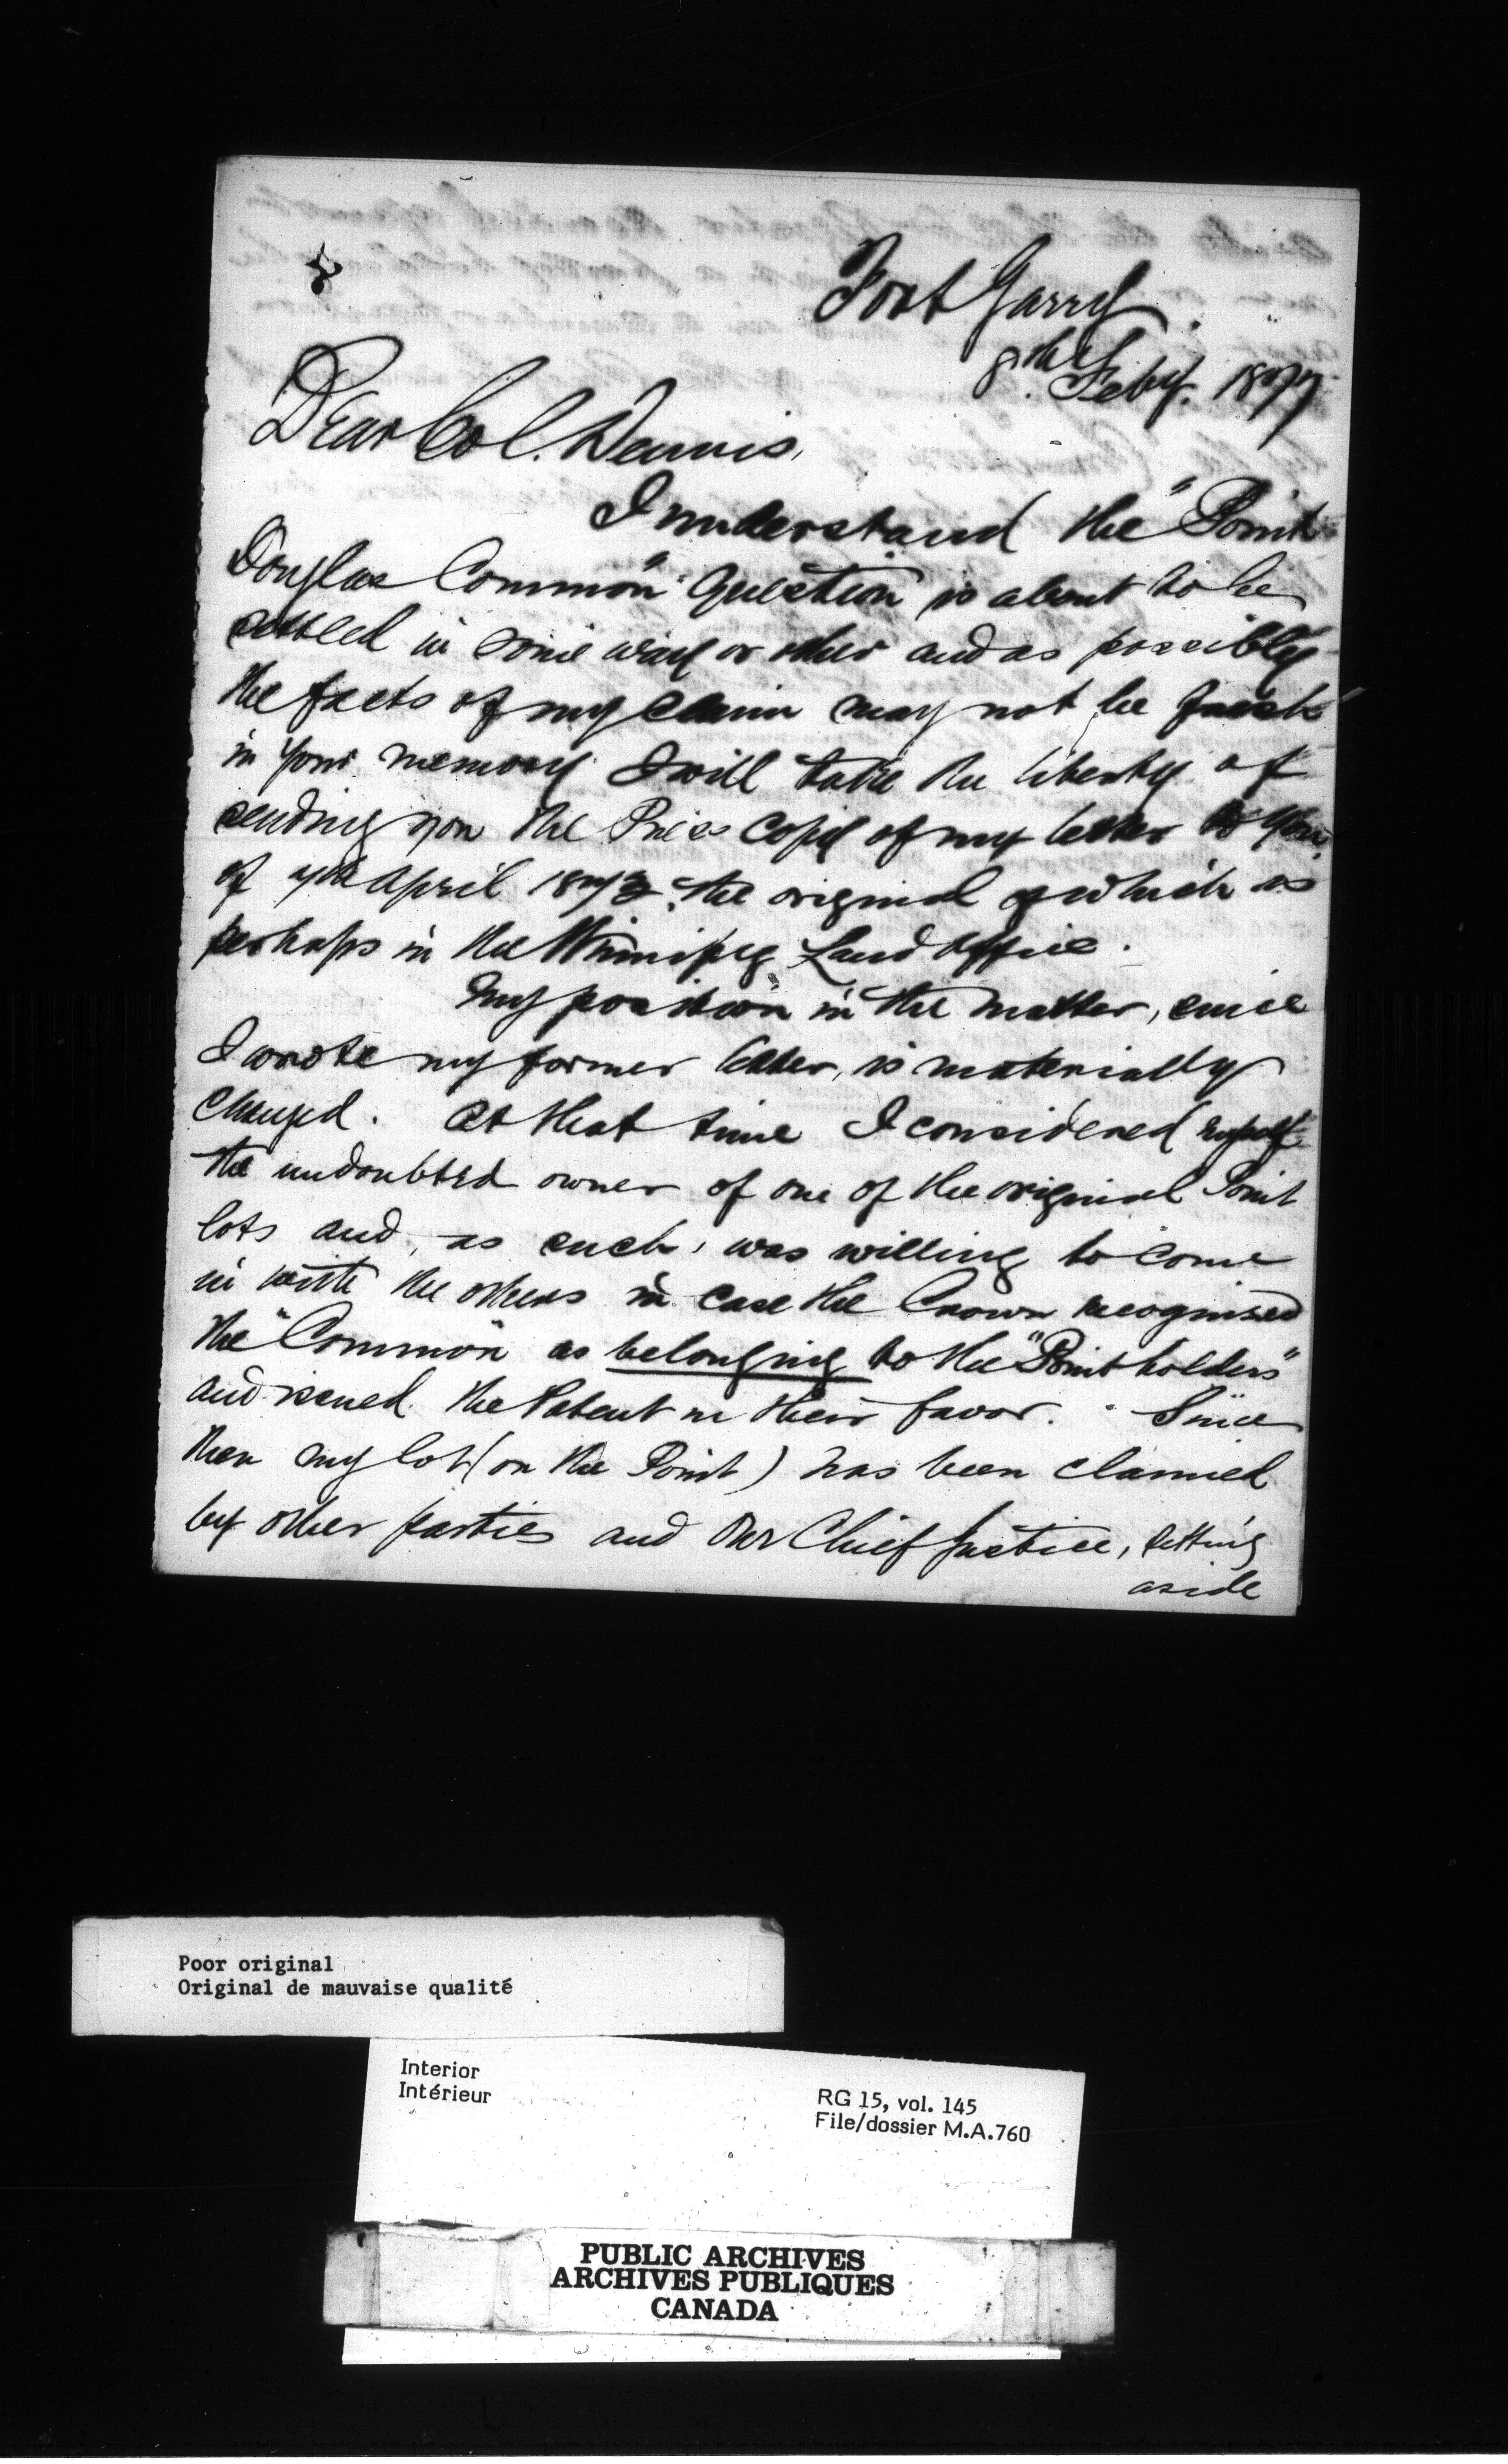 Fort Garry
8th Feby. 1877
Dear Col. Dennis,
I understand the "Point
Douglas Common" Question is about to be
settled in some way or other and as possibly
the facts of my claim may not be fresh
in your memory I will take the liberty of
sending you the Press Copy of my letter to you
of 7th April 1873, the original of which is
perhaps in the Winnipeg Land Office.
My position in the matter, since
I wrote my former letter, is materially
changed. At that time I considered myself
the undoubted owner of one of the original Point
lots and, as such, was willing to come
in with the others in case the Crown recognised
the "Common" as belonging to the "Point holders"
and issued the Patent in their favor. Since
then my lot (on the Point) has been claimed
by other parties and Our Chief Justice, setting
aside
Poor original
Original de mauvaise qualité
Interior
Intérieur
RG 15, vol. 145
File/dossier M.A.760
PUBLIC ARCHIVES
ARCHIVES PUBLIQUES
CANADA